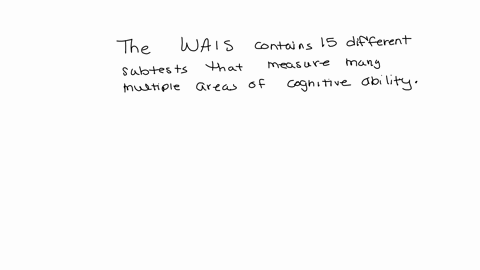 The WAIS contains 15 different
subtests that measure many
multiple areas of cognitive ability.